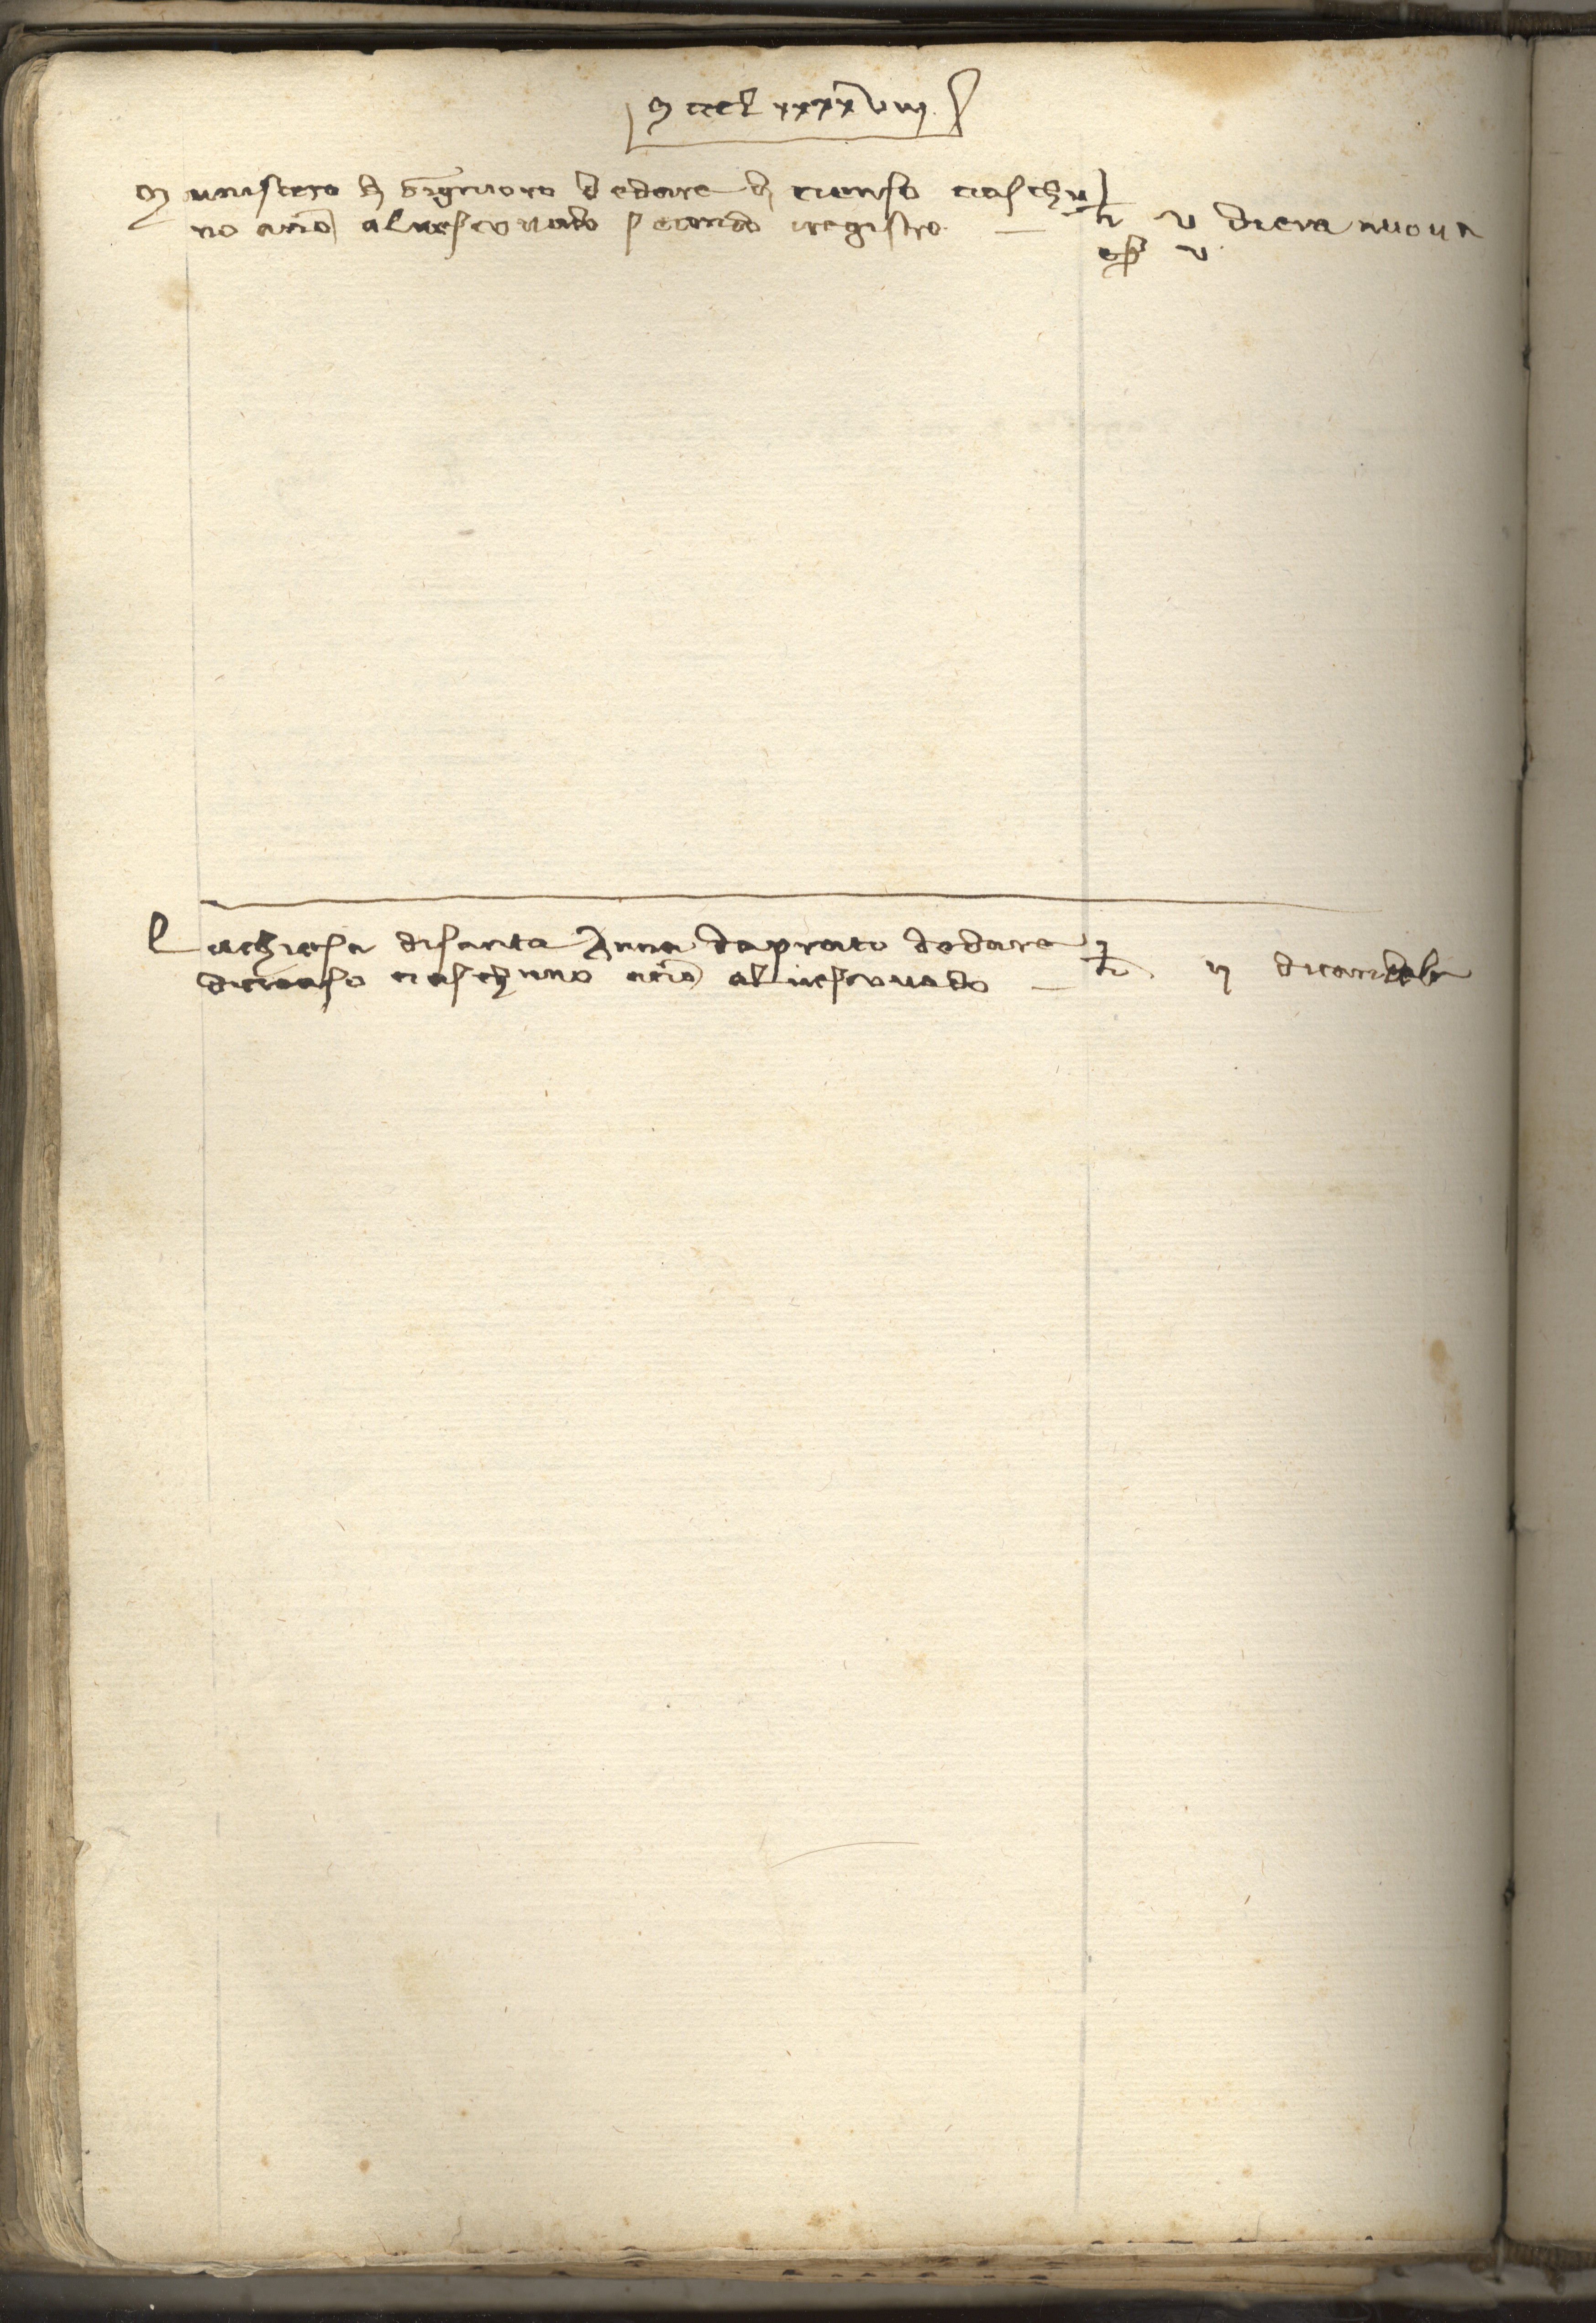 M ccc L xxxxviij
Munistero di bignoro de dare di cienso caschu
no anno al vescovado secondo iregistro — lb v di cera nuova
v
La chiesa di santa Anna da prato de dare
di cienso caschuno anno al vescovado — lb ij di candele